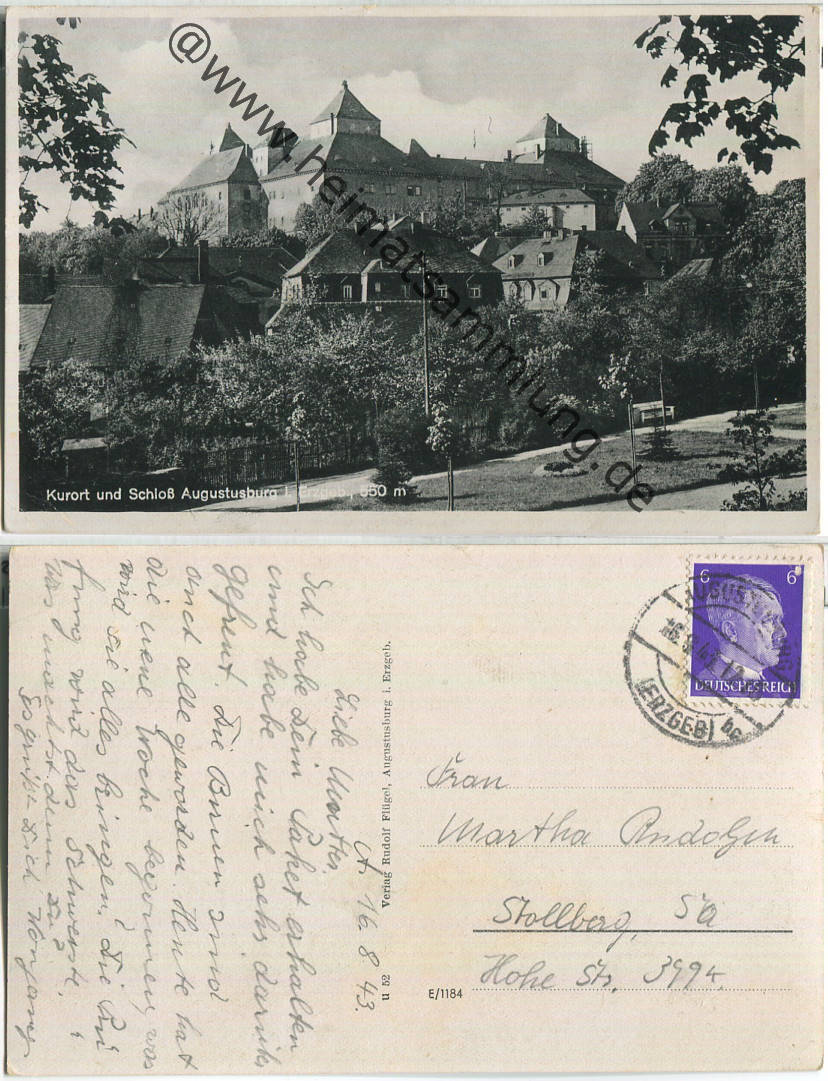 @www.heimatsammlung.de
Kurort und Schloß Augustusburg i. Erzgeb., 550 m
A. 16. 8. 43.
Liebe Martha,
Ich habe Dein Paket erhalten
und habe mich sehr darüber
gefreut. Die Birnen sind
auch alle geworden. Heute hat
die neue Woche begonnen, was
wird sie alles bringen? Die
wird das Schwerste.
Was machst denn Du?
Es grüßt Dich Wolfgang
Verlag Rudolf Flügel, Augustusburg i. Erzgeb.
u 52
E/1184
6 6
DEUTSCHES REICH
(ERZGEB) bc
Frau
Martha Rudolph
Stollberg, Sa
Hohe Str. 399r.